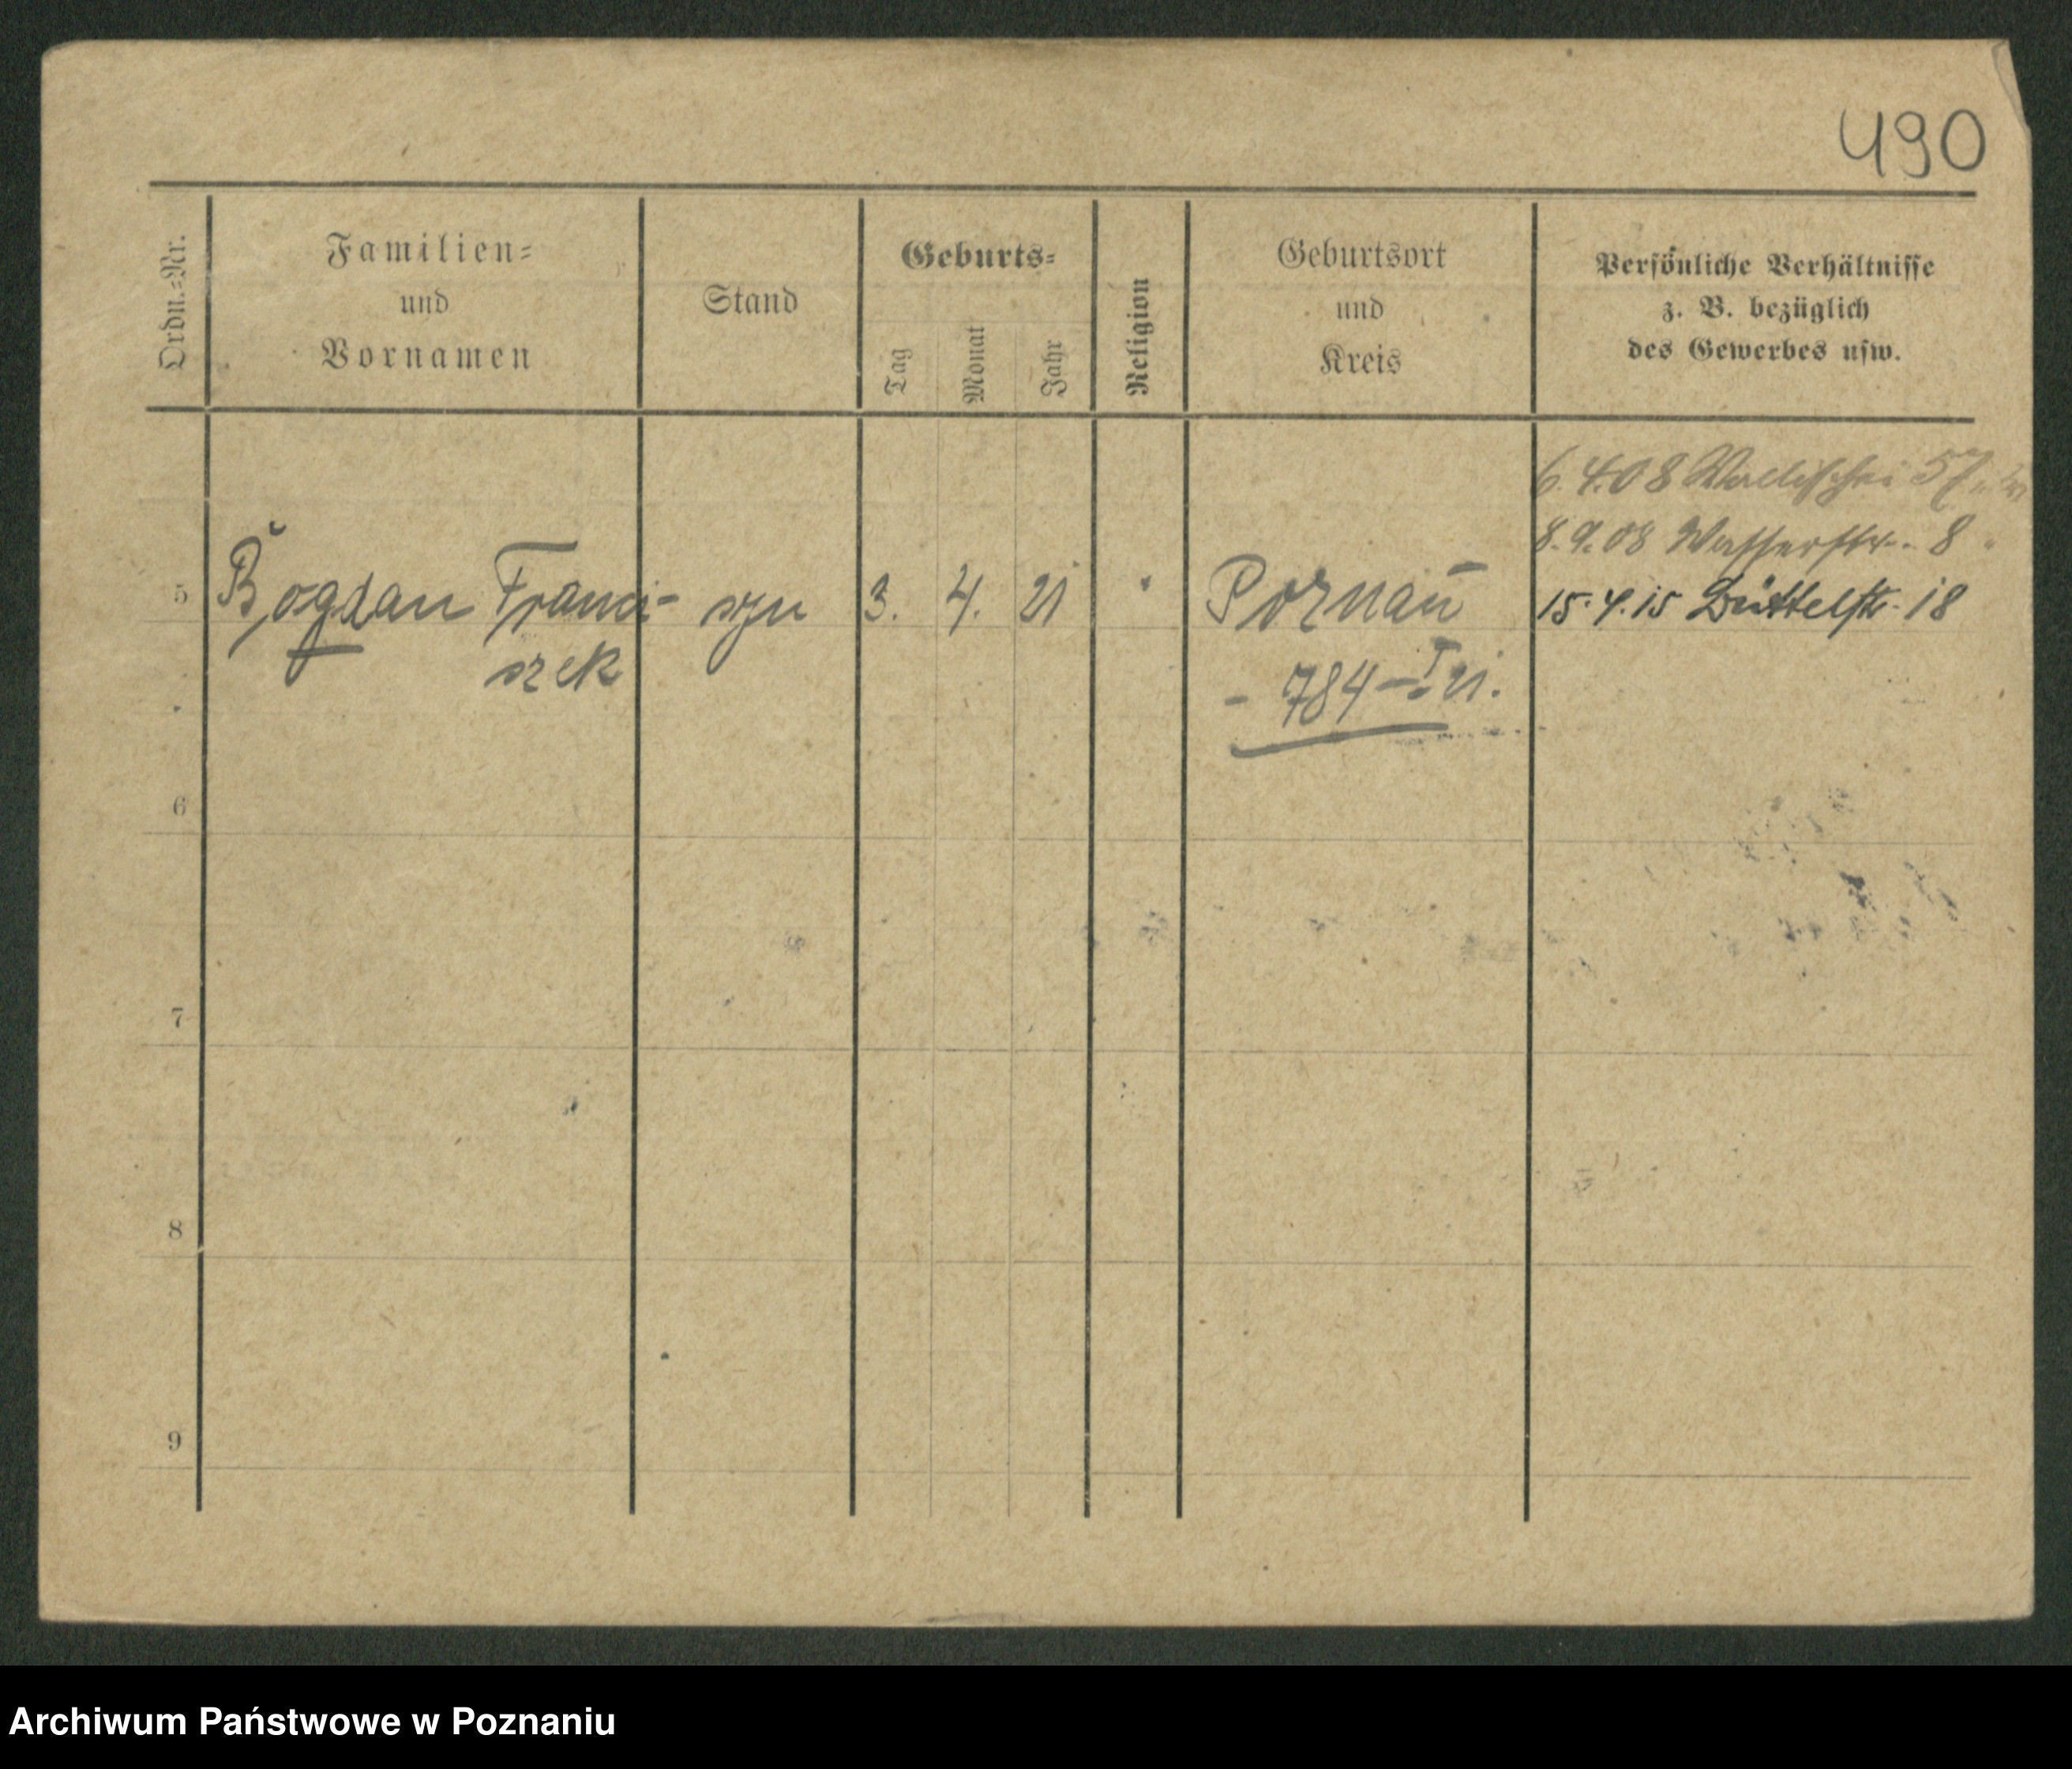 490
Ordn.-Nr.
Familien-
und
Vornamen
Stand
Geburts-
Tag
Monat
Jahr
Religion
Geburtsort
und
Kreis
Persönliche Verhältnisse
z. B. bezüglich
des Gewerbes usw.
6.4.08 Wallischei 57
8.9.08 Wasserstr. 8
15.4.15 Büttelstr. 18
5 Bogdan Franci- syn 3. 4. 21 Poznań
szek
- 784-I 21.
6
7
8
9
Archiwum Państwowe w Poznaniu